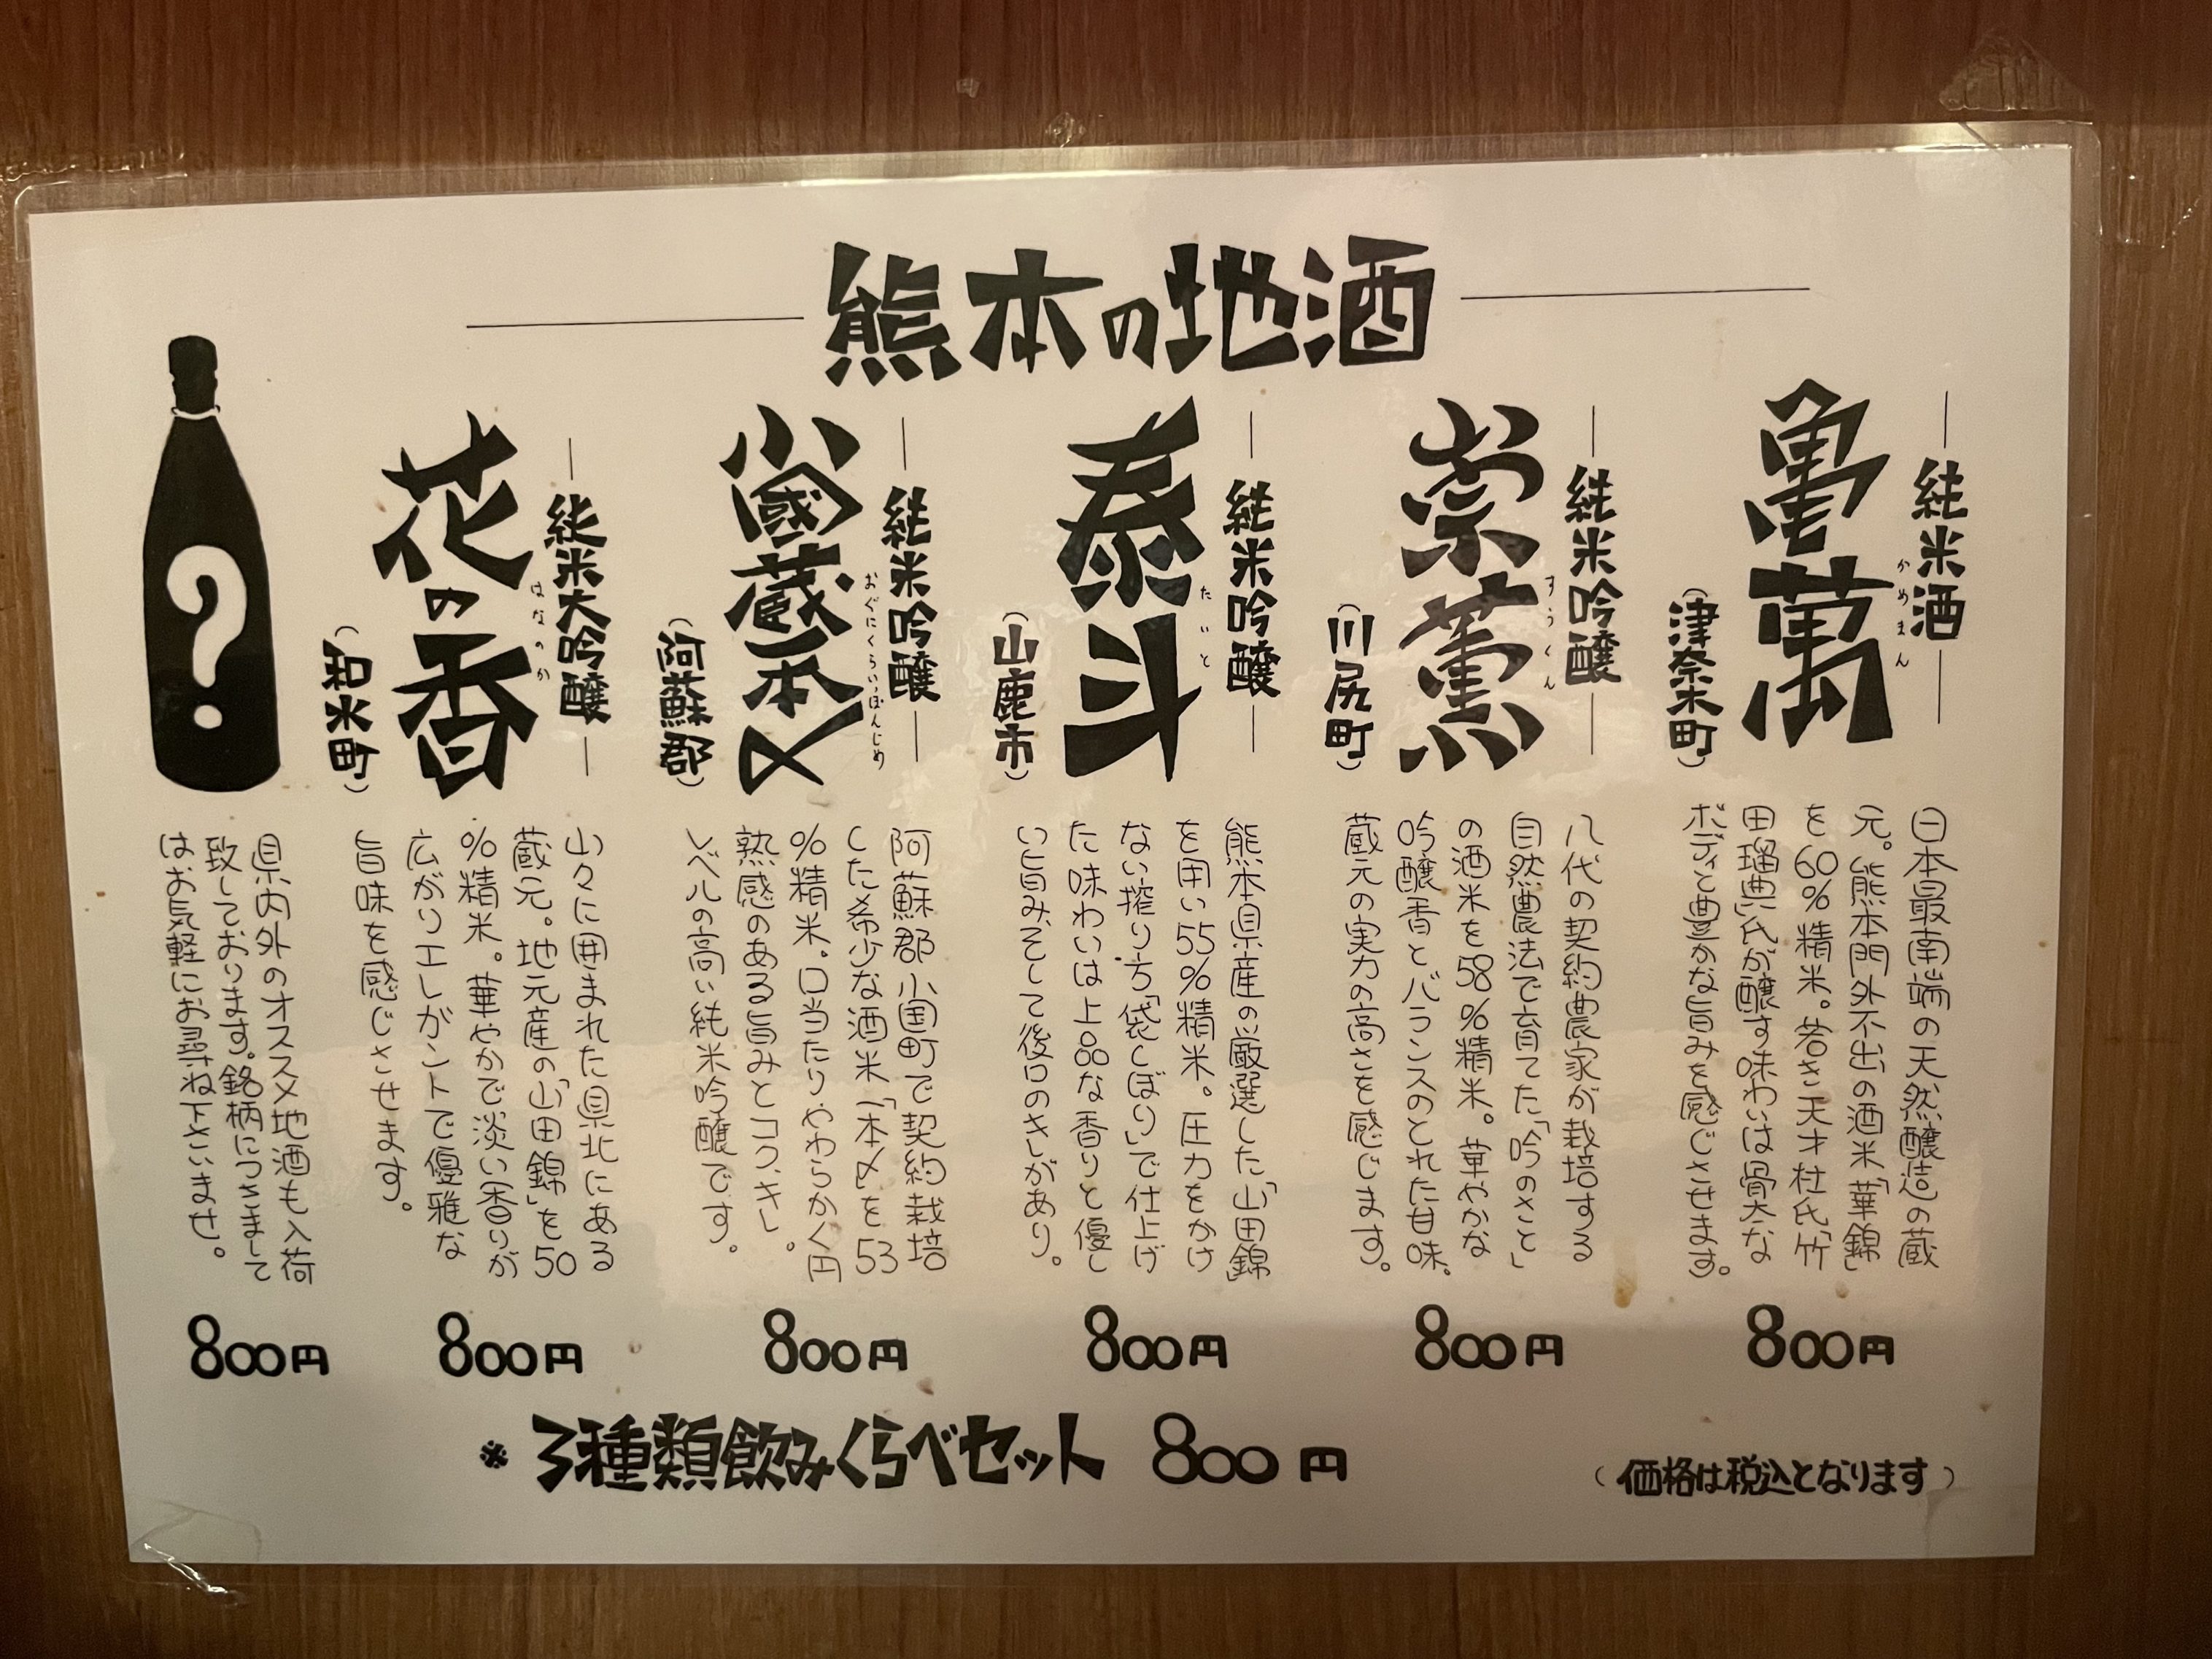 熊本の地酒
純米酒
亀萬
かめまん
(津奈木町)
日本最南端の天然醸造の蔵
元。熊本門外不出の酒米「華錦」
を60%精米。若き天才杜氏「竹
田瑠典」氏が醸す味わいは骨太な
ボディと豊かな旨みを感じさせます。
800円
純米吟醸
崇薫
すうくん
(川尻町)
八代の契約農家が栽培する
自然農法で育てた「吟のさと」
の酒米を58%精米。華やかな
吟醸香とバランスのとれた甘味。
蔵元の実力の高さを感じます。
800円
純米吟醸
泰斗
たいと
(山鹿市)
熊本県産の厳選した「山田錦」
を用い55%精米。圧力をかけ
ない搾り方「袋しぼり」で仕上げ
た味わいは上品な香りと優し
い旨み、そして後口のキレがあり。
800円
純米吟醸
小國蔵一本〆
おぐにくらいっぽんじめ
(阿蘇郡)
阿蘇郡小国町で契約栽培
した希少な酒米「一本〆」を53
%精米。口当たりやわらかく円
熟感のある旨みとコク、キレ。
レベルの高い純米吟醸です。
800円
純米大吟醸
花の香
はなのか
(和水町)
山々に囲まれた県北にある
蔵元。地元産の「山田錦」を50
%精米。華やかで淡い香りが
広がりエレガントで優雅な
旨味を感じさせます。
800円
?
県内外のオススメ地酒も入荷
致しております。銘柄につきまして
はお気軽にお尋ね下さいませ。
800円
※3種類飲みくらべセット 800円
(価格は税込となります)